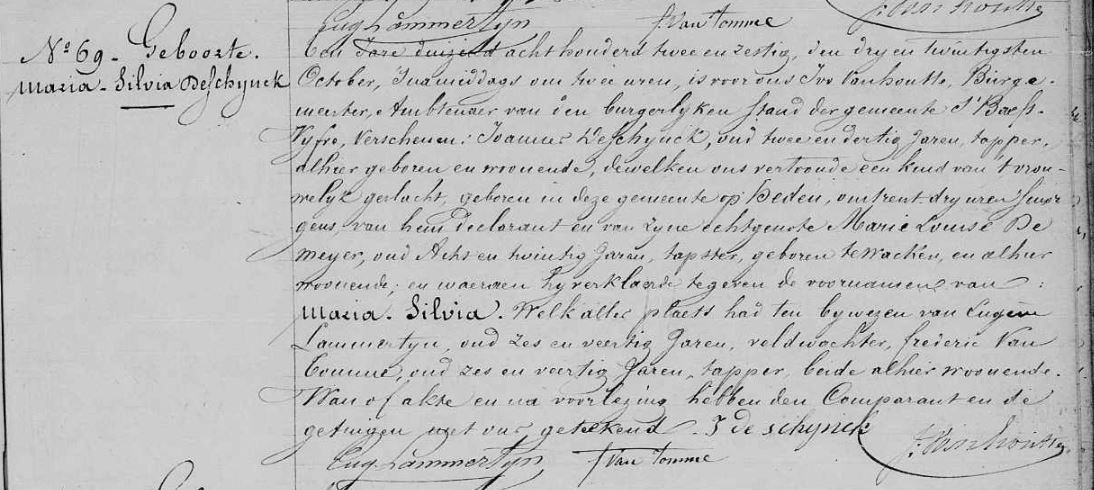 Eug Lammertyn f. Van Tomme
Nº 69 - Geboorte.
Maria - Silvia Deschynck
Een Jare duizend acht honderd twee en zestig, den dry en twintigsten
October, 's namiddags om twee uren, is voor ons Ivo Vanhoutte, Burge-
meester, Ambtenaer van den burgerlyken stand der gemeente S' Baefs-
Vyfve, Verschenen: Joannes Deschynck, oud twee en dertig Jaren, tapper,
alhier geboren en woonende, dewelken ons vertoonde een kind van 't vrou-
welyk geslacht, geboren in deze gemeente op heden, omtrent dry uren 's mor
gens, van hem declarant en van zyne echtgenote Marie Louise De
meyer, oud Acht en twintig Jaren, tapster, geboren te Wacken, en alhier
woonende; en waeraen hy verklaerde te geven de voornamen van :
Maria - Silvia. Welk alles plaets had ten bywezen van Eugeen
Lammertyn, oud zes en veertig Jaren, veldwachter, frederic Van
Tomme, oud zes en veertig Jaren, tapper, beide alhier woonende.
Wan of akte en na voorlezing hebben den Comparant en de
getuigen met ons geteekend. J de schynck
Eug Lammertyn f Van Tomme J. Vanhoutte